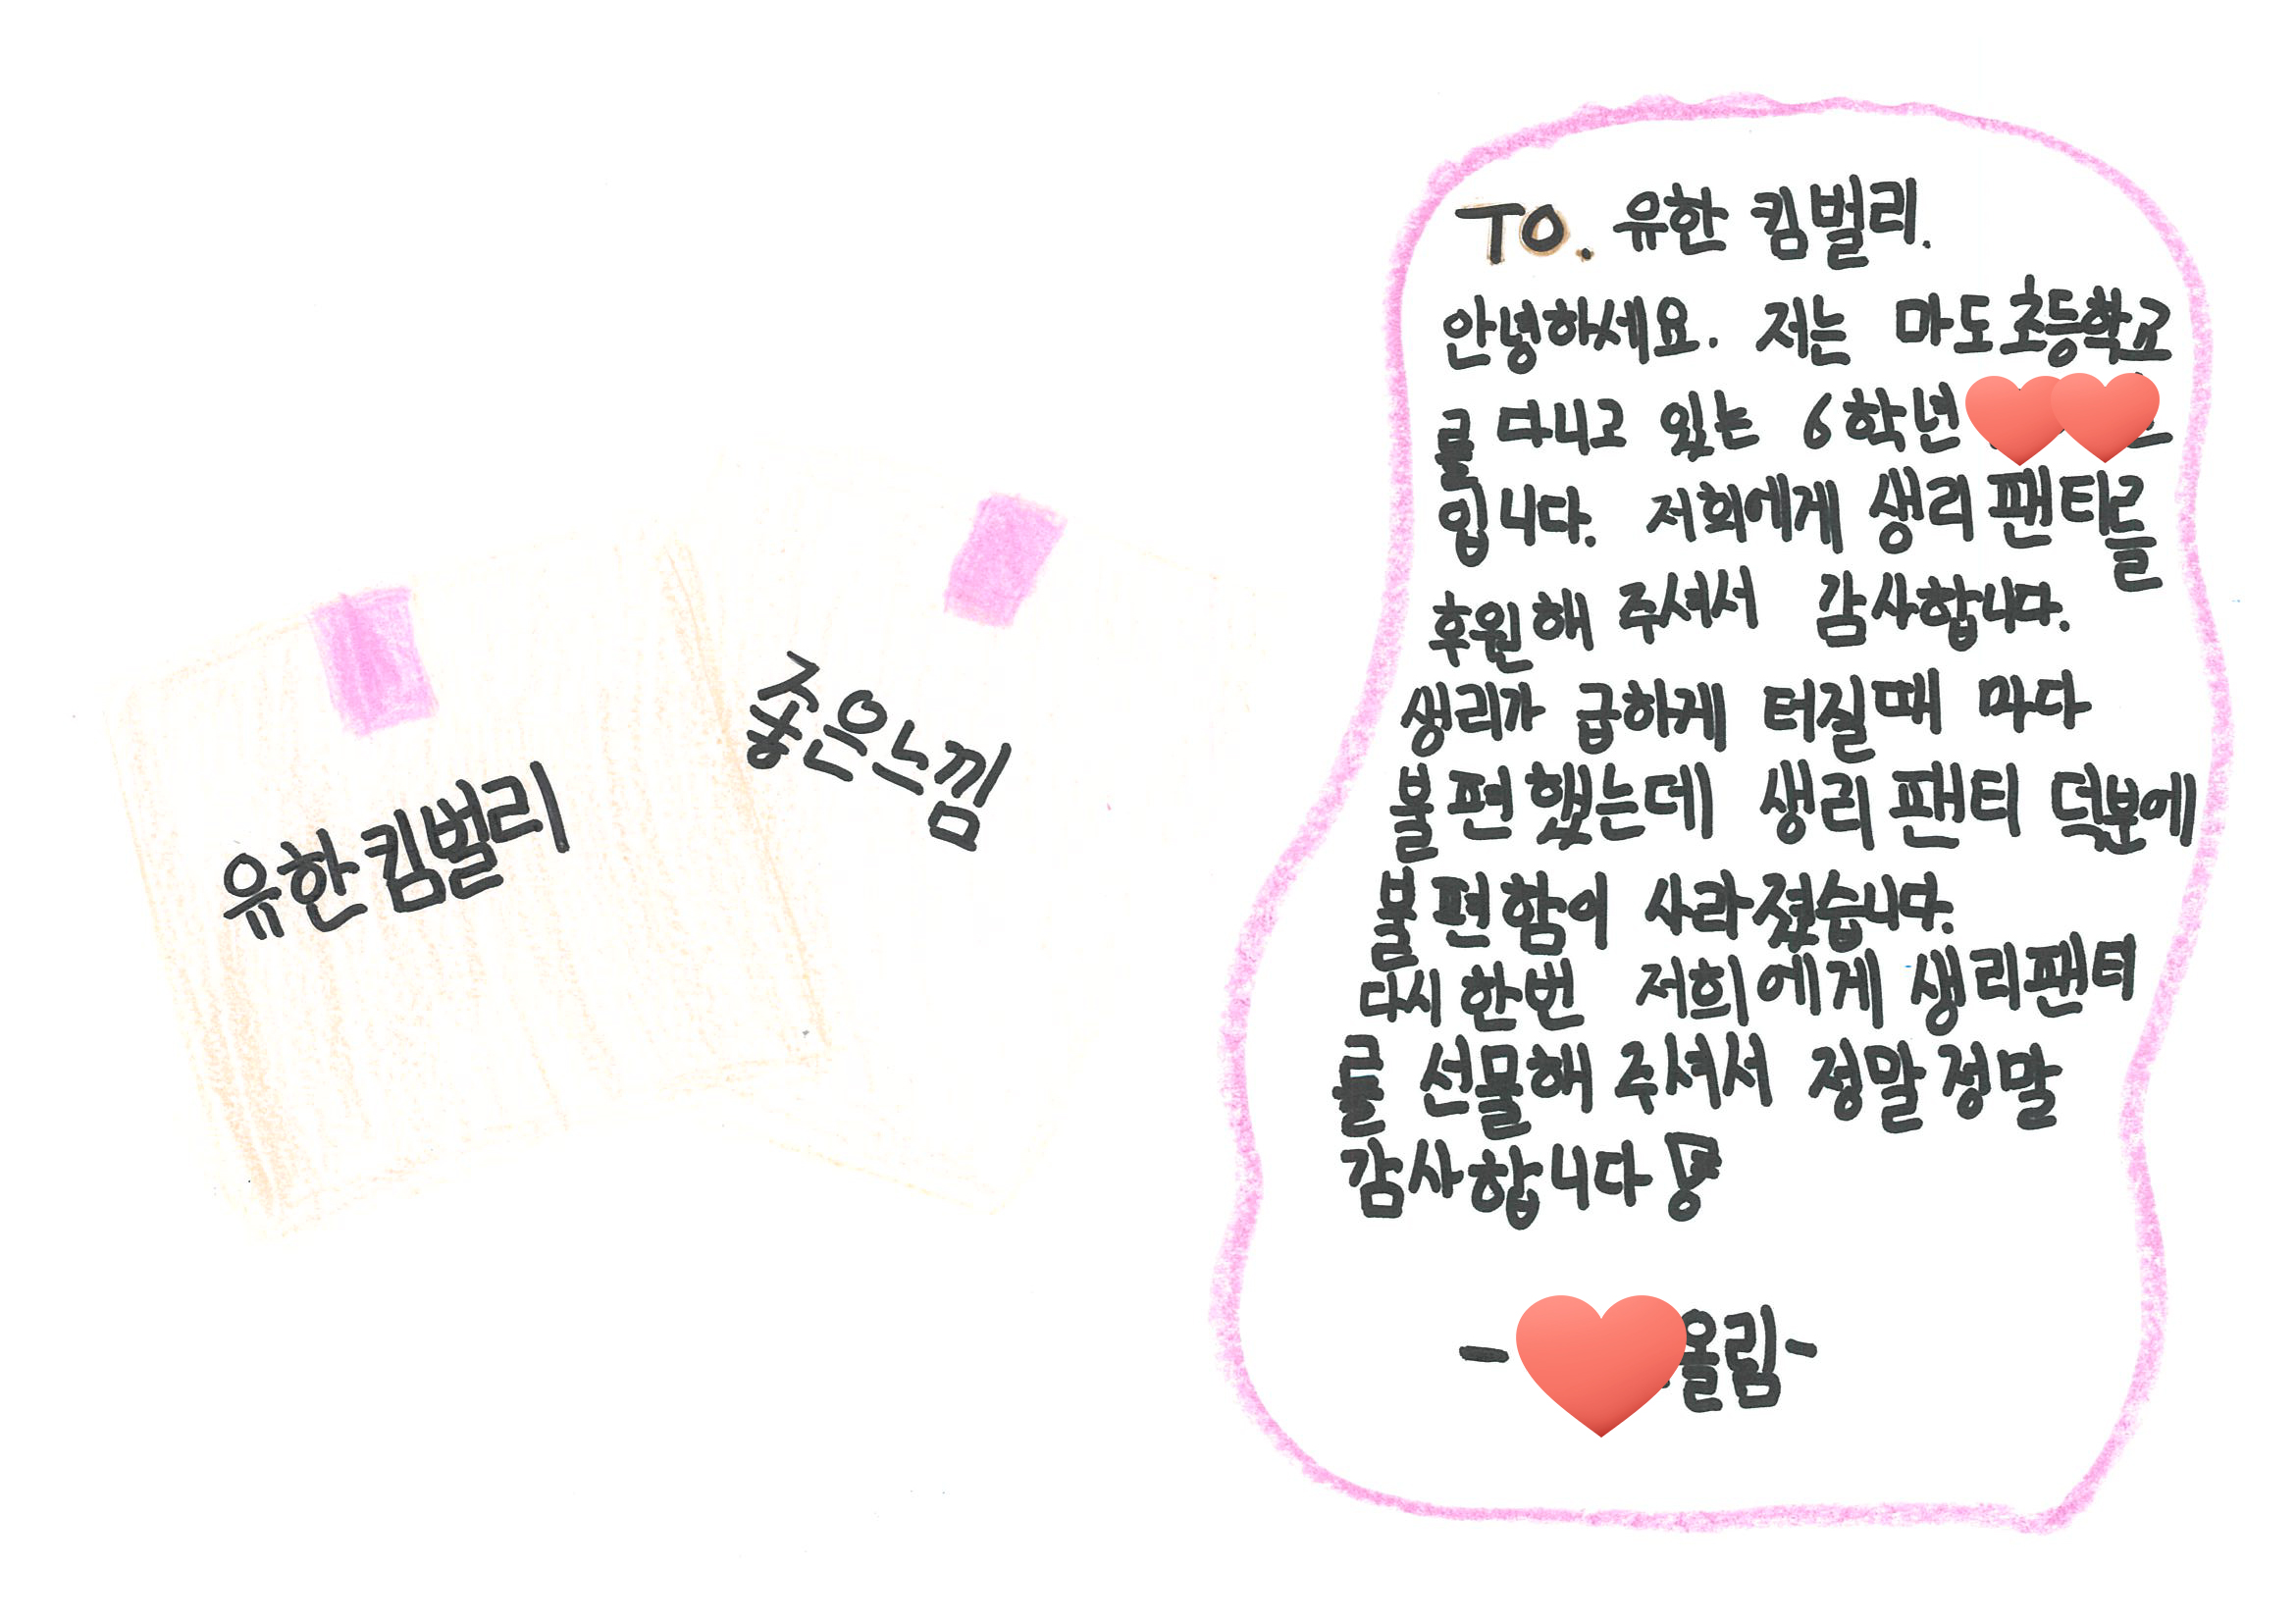 유한킴벌리
좋은느낌
TO. 유한 킴벌리.
안녕하세요. 저는 마도초등학교
를 다니고 있는 6학년
입니다. 저희에게 생리 팬티를
후원해 주셔서 감사합니다.
생리가 급하게 터질때 마다
불편했는데 생리 팬티 덕분에
불편함이 사라졌습니다.
다시 한번 저희에게 생리팬티
를 선물해 주셔서 정말정말
감사합니다!
- 올림-